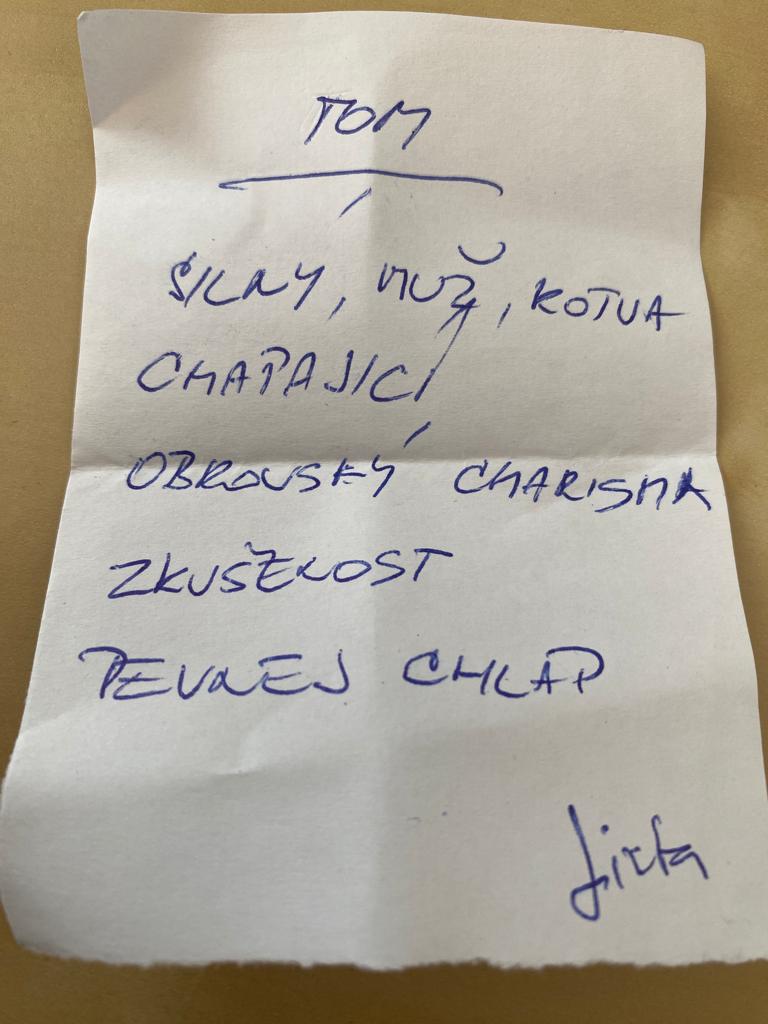 TOM
SILNÝ, MUŽ, KOTVA
CHAPAJÍCÍ
OBROVSKÝ CHARISMA
ZKUŠENOST
PEVNEJ CHLAP
Jirka